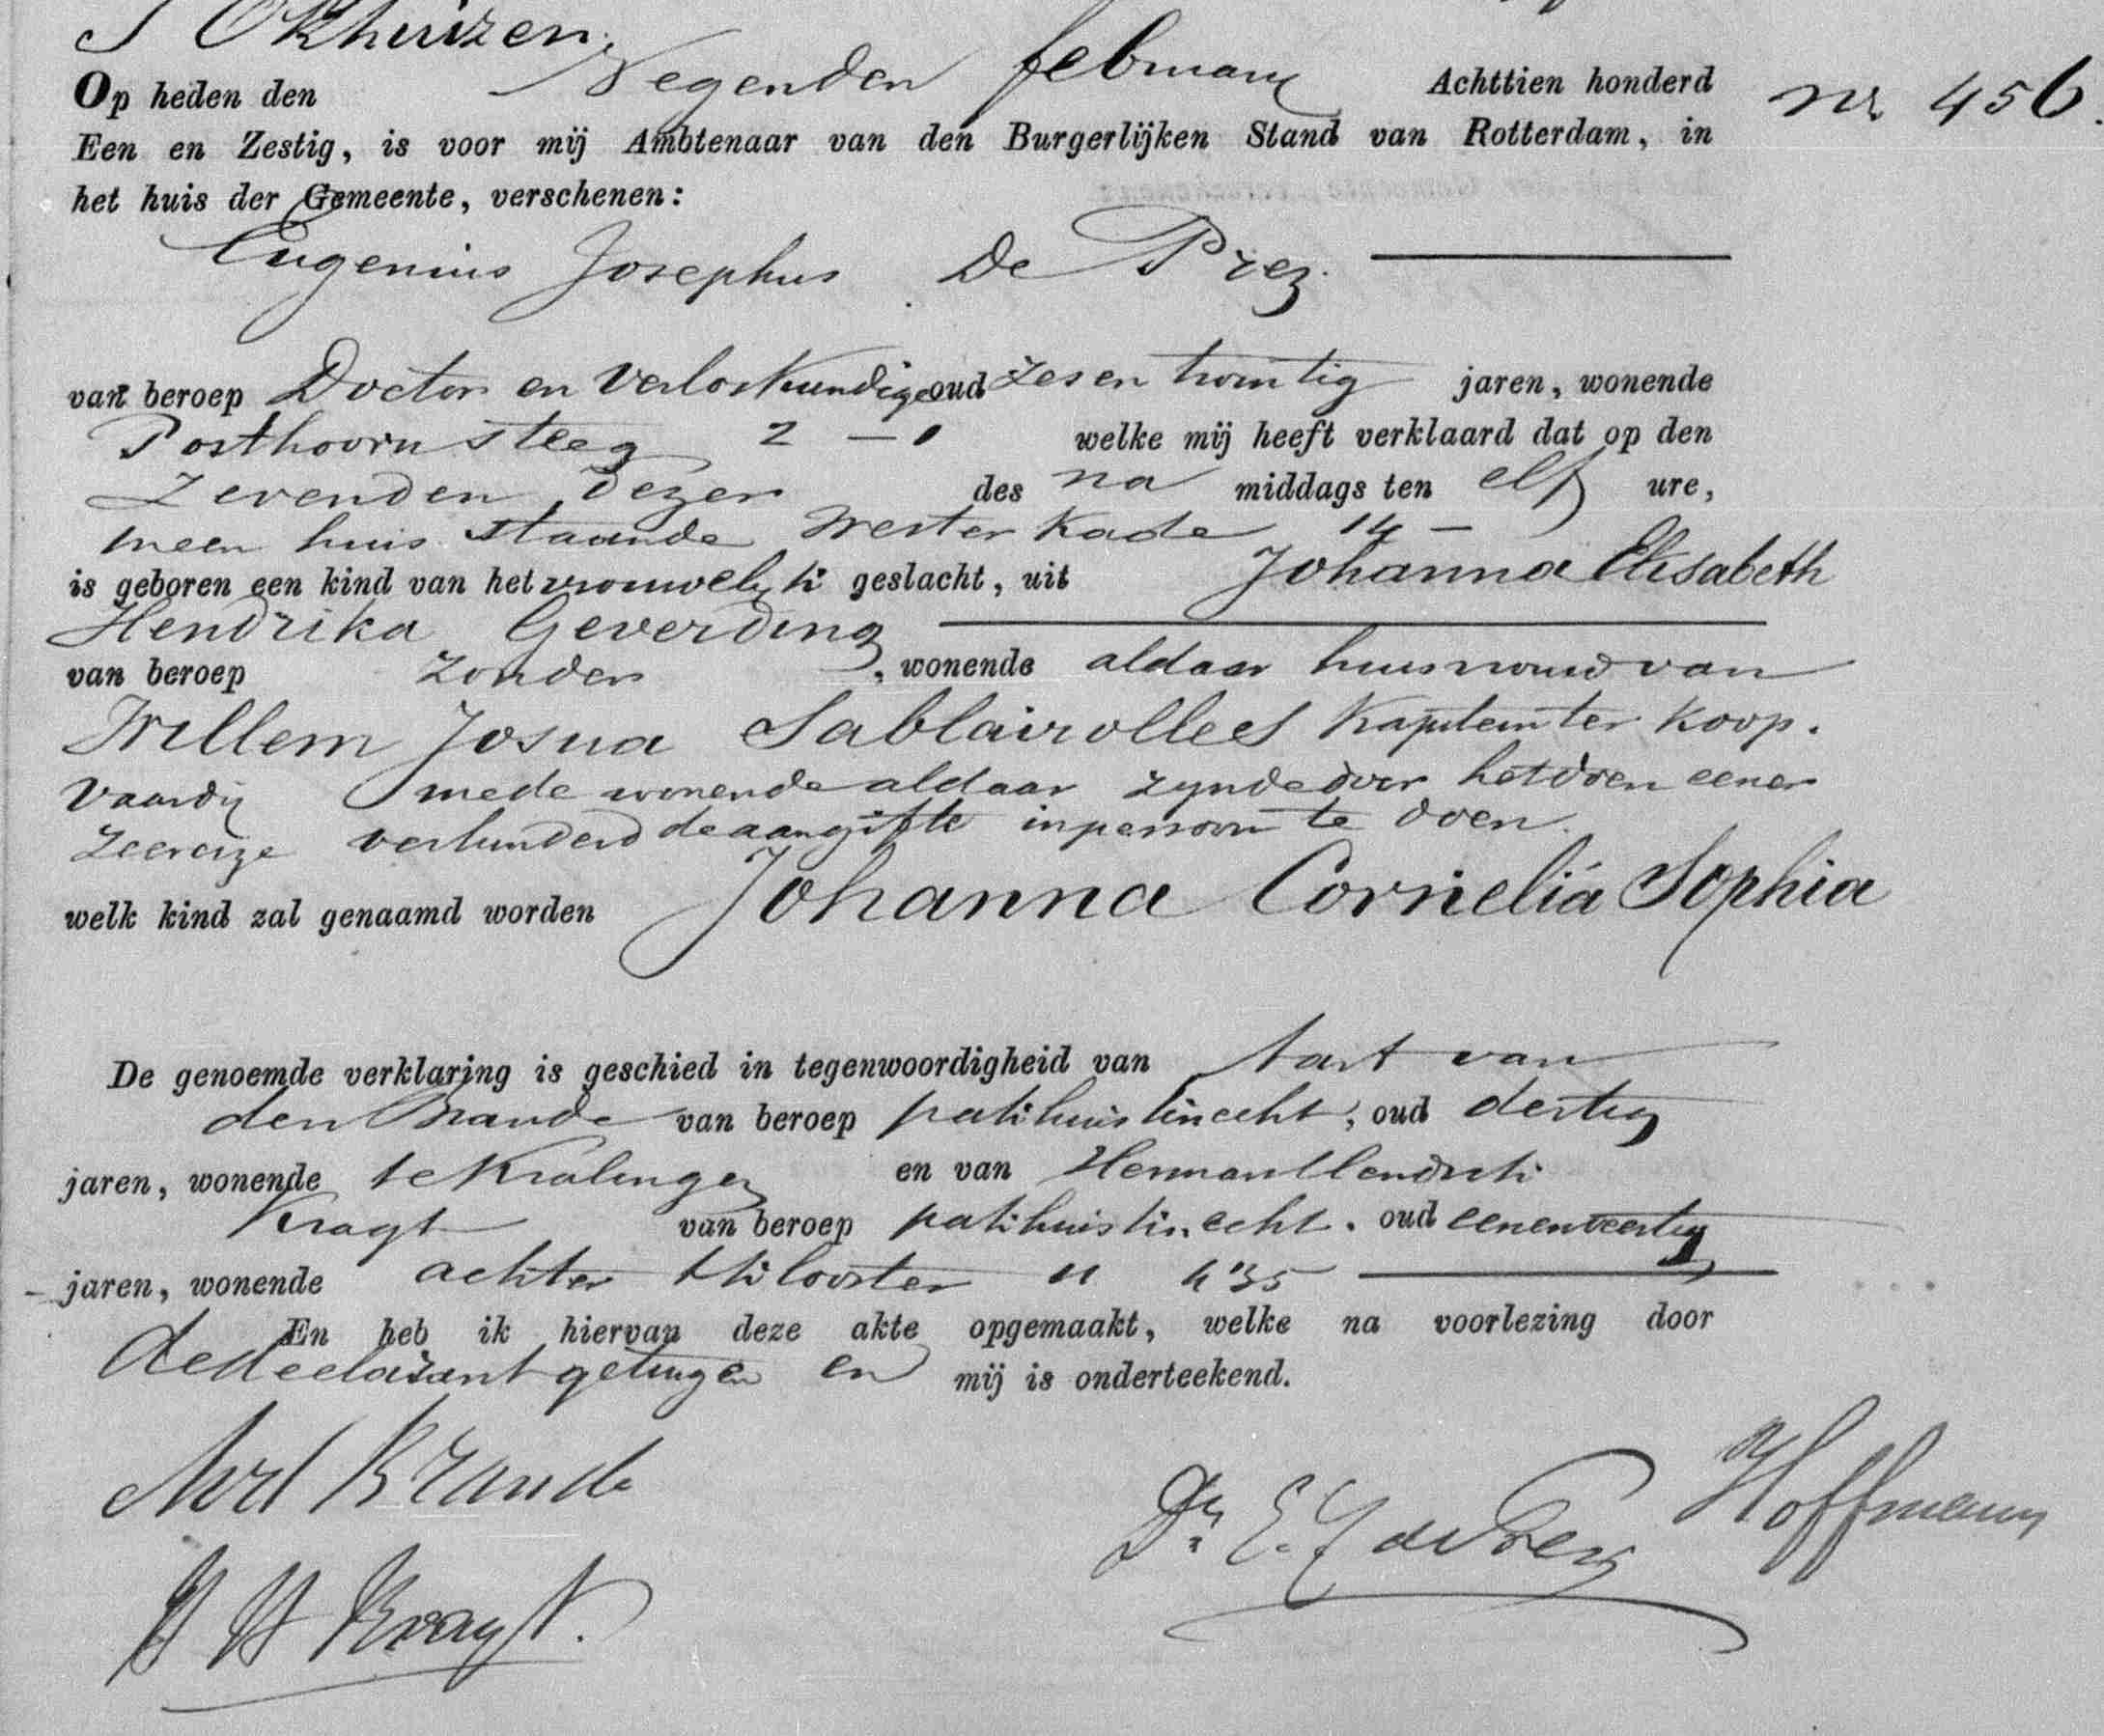 Okhuizen.
Op heden den Negenden februarij Achttien honderd nr. 456.
Een en Zestig, is voor mij Ambtenaar van den Burgerlijken Stand van Rotterdam, in
het huis der Gemeente, verschenen:
Eugenius Josephus De Prez.
van beroep Doctor en Verloskundige oud Zes en twintig jaren, wonende
Posthoornsteeg 2 – welke mij heeft verklaard dat op den
Zevenden dezer des na middags ten elf ure,
in een huis staande Wester Kade 14 –
is geboren een kind van het vrouwelijk geslacht, uit Johanna Elisabeth
Hendrika Geverding
van beroep Zonder, wonende aldaar huisvrouw van
Willem Josua Sablairolles Kapitein ter Koop.
vaardij mede wonende aldaar zynde door het doen eener
Zeereize verhinderd de aangifte in persoon te doen.
welk kind zal genaamd worden Johanna Cornelia Sophia
De genoemde verklaring is geschied in tegenwoordigheid van Aart van
den Brande van beroep pakhuisknecht, oud dertig
jaren, wonende te Kralingen en van Herman Hendrik
Kragt van beroep pakhuisknecht. oud eenenveertig
jaren, wonende achter Klooster
En heb ik hiervan deze akte opgemaakt, welke na voorlezing door
de declarant getuigen en mij is onderteekend.
Brande Hoffmann
Dr. E. J. de Prez
H H Kragt.